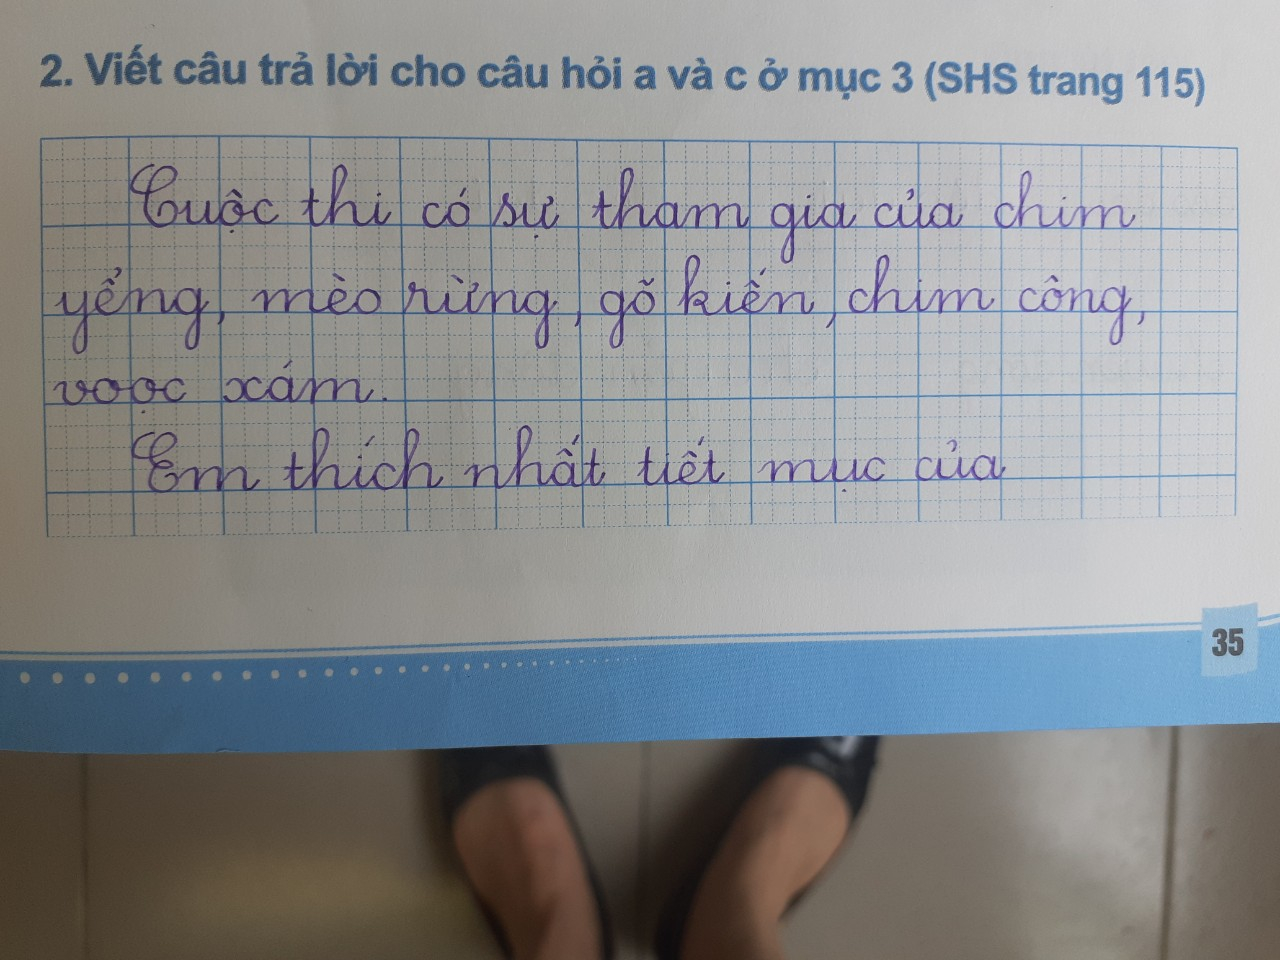 2. Viết câu trả lời cho câu hỏi a và c ở mục 3 (SHS trang 115)
Cuộc thi có sự tham gia của chim
yểng, mèo rừng, gõ kiến, chim công,
voọc xám.
Em thích nhất tiết mục của
35